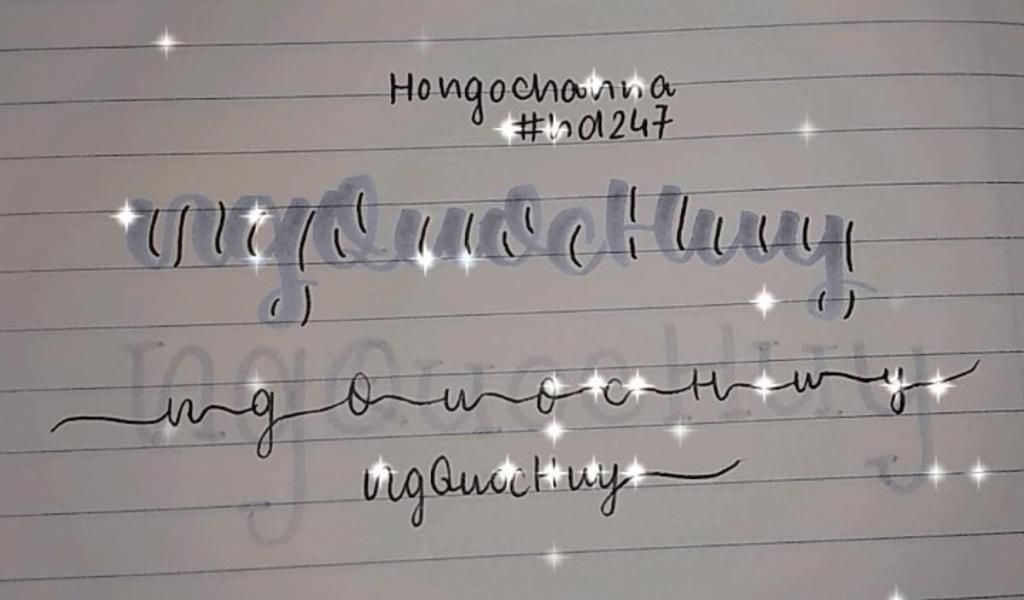 Hongochanna
#hd247
ngQuocHuy
ng Quoc Huy
ngQuocHuy